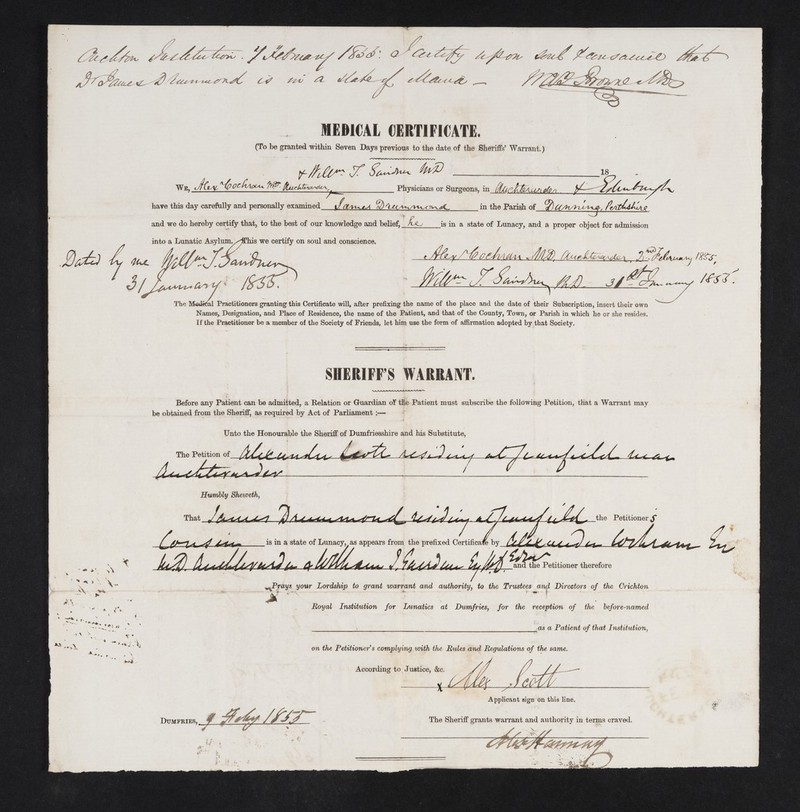 Crichton Institution. 9 February 1855. I certify upon soul & conscience that
Dr James Drummond is in a state of Mania – W.A.F. Browne MD
MEDICAL CERTIFICATE.
(To be granted within Seven Days previous to the date of the Sheriffs' Warrant.)
& Willm T. Gairdner MD 18
We, Alexr Cochran MD Auchterarder, Physicians or Surgeons, in Auchterarder & Edinburgh
have this day carefully and personally examined James Drummond in the Parish of Dunning, Perthshire
and we do hereby certify that, to the best of our knowledge and belief, he is in a state of Lunacy, and a proper object for admission
into a Lunatic Asylum. This we certify on soul and conscience.
Alexr Cochran M.D. Auchterarder, 2nd February 1855.
Dated by me Willm T. Gairdner
31 January 1855.
Willm T. Gairdner M.D. 31st January 1855.
The Medical Practitioners granting this Certificate will, after prefixing the name of the place and the date of their Subscription, insert their own
Names, Designation, and Place of Residence, the name of the Patient, and that of the County, Town, or Parish in which he or she resides.
If the Practitioner be a member of the Society of Friends, let him use the form of affirmation adopted by that Society.
SHERIFF'S WARRANT.
Before any Patient can be admitted, a Relation or Guardian of the Patient must subscribe the following Petition, that a Warrant may
be obtained from the Sheriff, as required by Act of Parliament ;—
Unto the Honourable the Sheriff of Dumfriesshire and his Substitute,
The Petition of Alexander Scott residing at Jeanfield near
Auchterarder
Humbly Sheweth,
That James Drummond residing at Jeanfield the Petitioner's
Cousin is in a state of Lunacy, as appears from the prefixed Certificate by Alexander Cochran Esq
M.D. Auchterarder & William T. Gairdner Esq M.D. Edinr and the Petitioner therefore
Prays your Lordship to grant warrant and authority, to the Trustees and Directors of the Crichton
Royal Institution for Lunatics at Dumfries, for the reception of the before-named
as a Patient of that Institution,
on the Petitioner's complying with the Rules and Regulations of the same.
According to Justice, &c.
x Alex Scott
Applicant sign on this line.
Dumfries, 9 Feby 1855 The Sheriff grants warrant and authority in terms craved.